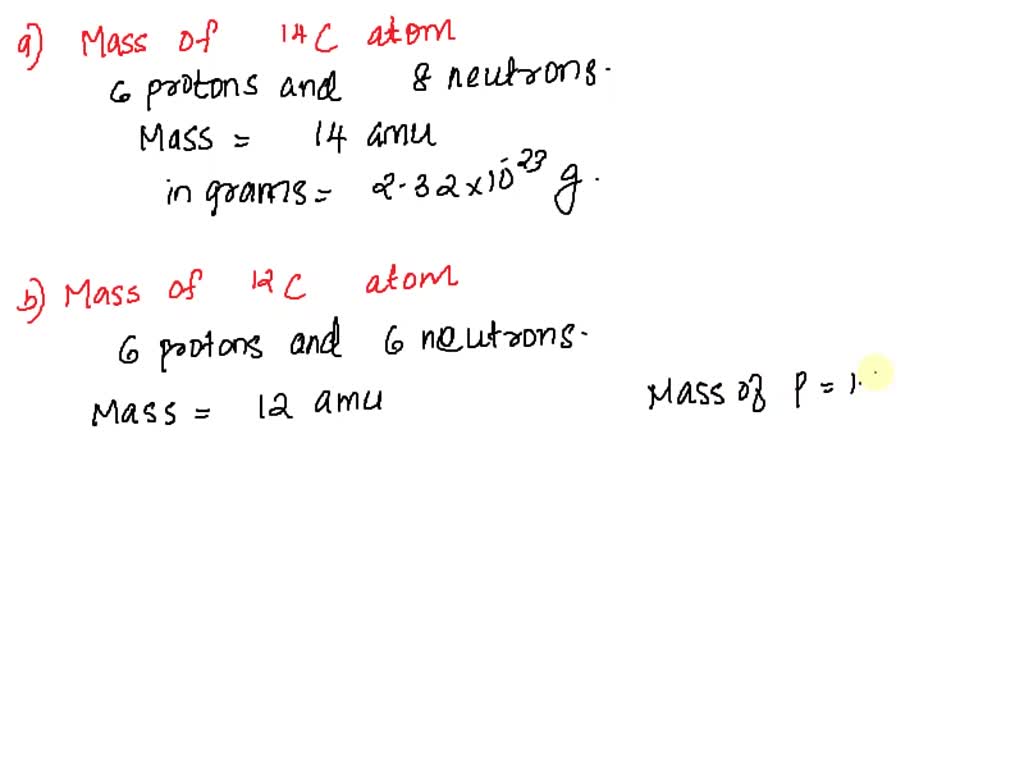 a) Mass of ¹⁴C atom
6 protons and 8 neutrons.
Mass = 14 amu
in grams = 2.32×10⁻²³ g.
b) Mass of ¹²C atom
6 protons and 6 neutrons.
Mass = 12 amu
Mass of P = 1.